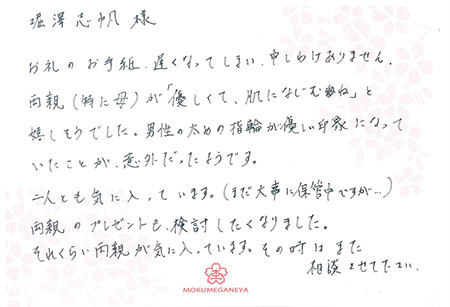 堀澤志帆 様
お礼のお手紙、遅くなってしまい、申しわけありません。
両親（特に母）が「優しくて、肌になじむね」と
嬉しそうでした。男性の太めの指輪が優しい印象になって
いたことが、意外だったようです。
二人とも気に入っています。（まだ大事に保管中ですが…）
両親のプレゼントも、検討したくなりました。
それくらい両親が気に入っています。その時はまた
相談させて下さい。
MOKUMEGANEYA